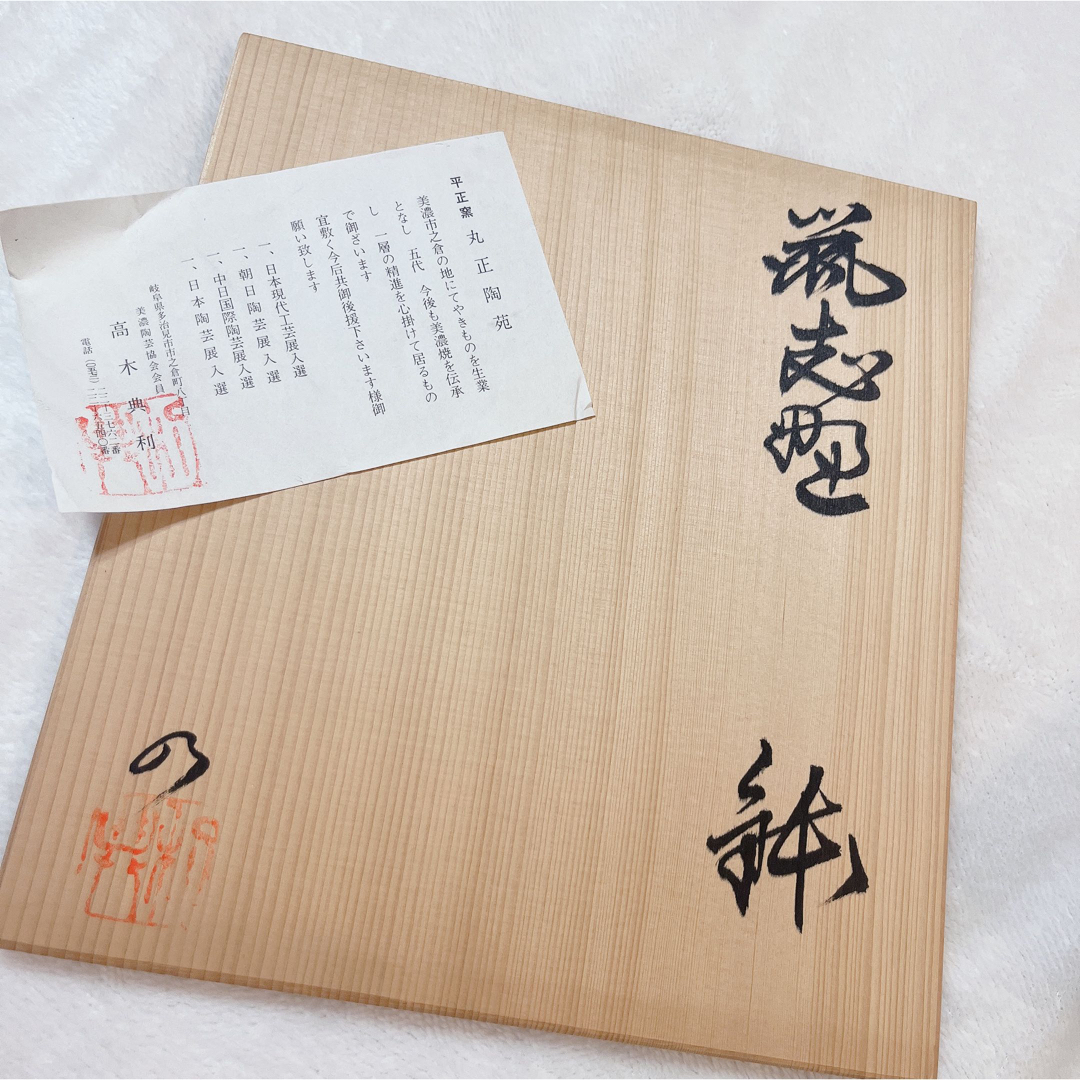 平正窯 丸正陶苑
美濃市之倉の地にてやきものを生業
となし 五代 今後も美濃焼を伝承
し 一層の精進を心掛けて居るもの
で御ざいます
宜敷く今后共御後援下さいます様御
願い致します
一、日本現代工芸展入選
一、朝日陶芸展入選
一、中日国際陶芸展入選
一、日本陶芸展入選
岐阜県多治見市市之倉町八丁目
美濃陶芸協会会員
高木典利
電話
志野
鉢